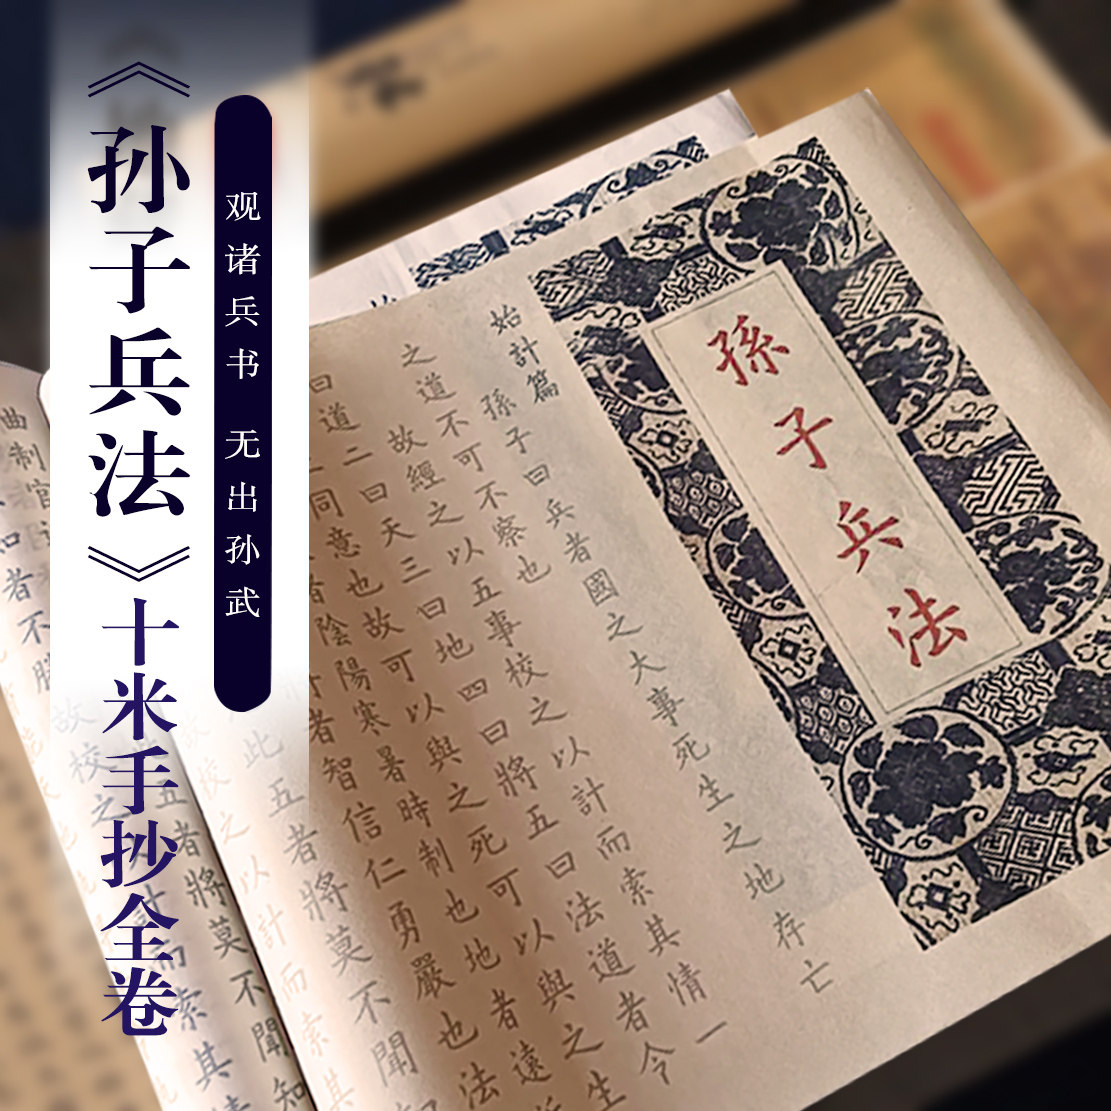 《孙子兵法》十米手抄全卷
观诸兵书 无出孙武
孫子兵法
始計篇
孫子曰兵者國之大事死生之地存亡
之道不可不察也
故經之以五事校之以計而索其情一
曰道二曰天三曰地四曰將五曰法道者令
同意也故可以與之死可以與之生
者陰陽寒暑時制也地者遠
者智信仁勇嚴也法
此五者將莫不聞
校之以計而索其
五者將莫不聞知
故校之
計而索其情
曲制官
知者不勝